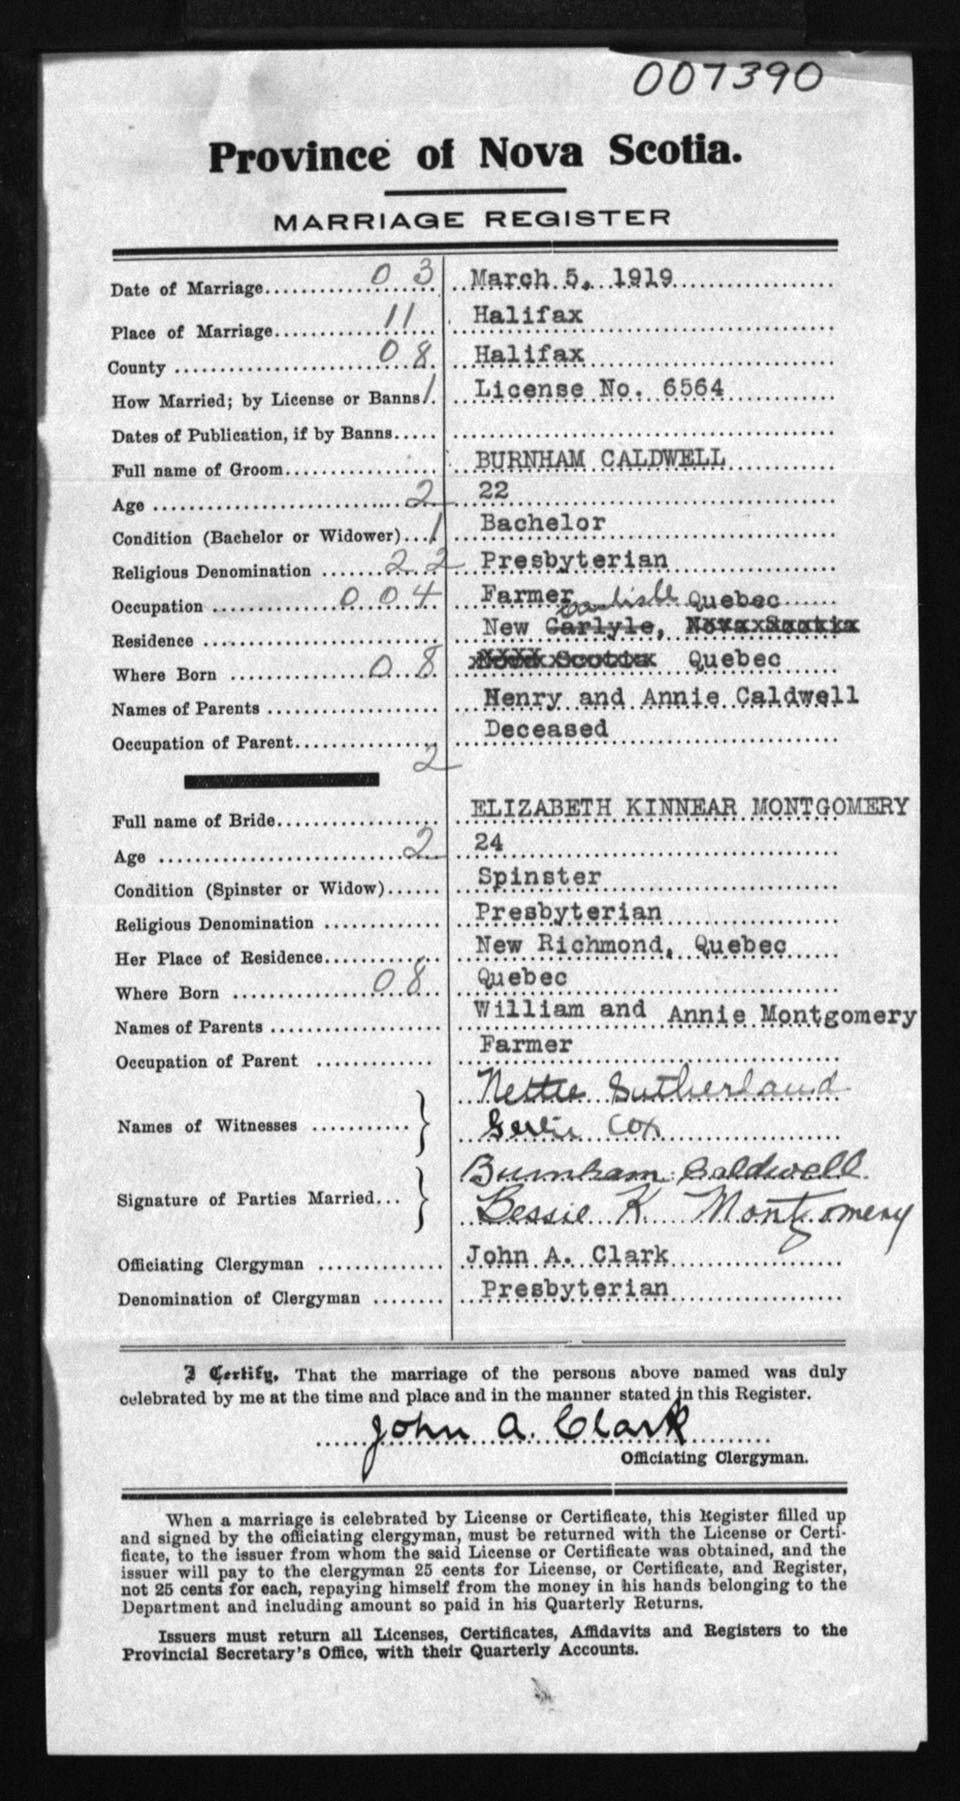 007390
Province of Nova Scotia.
MARRIAGE REGISTER
Date of Marriage 03 March 5, 1919
Place of Marriage 11 Halifax
County 08 Halifax
How Married; by License or Banns 1 License No. 6564
Dates of Publication, if by Banns
Full name of Groom BURNHAM CALDWELL
Age 2 22
Condition (Bachelor or Widower) 1 Bachelor
Religious Denomination 22 Presbyterian
Occupation 004 Farmer
Carlisle Quebec
Residence New Carlyle, Nova Scotia
Where Born 08 Nova Scotia Quebec
Names of Parents Henry and Annie Caldwell
Occupation of Parent Deceased
2
Full name of Bride ELIZABETH KINNEAR MONTGOMERY
Age 2 24
Condition (Spinster or Widow) Spinster
Religious Denomination Presbyterian
Her Place of Residence New Richmond, Quebec
Where Born 08 Quebec
Names of Parents William and Annie Montgomery
Occupation of Parent Farmer
Names of Witnesses Nettie Sutherland
Cox
Signature of Parties Married Burnham Caldwell
Bessie K. Montgomery
Officiating Clergyman John A. Clark
Denomination of Clergyman Presbyterian
I Certify, That the marriage of the persons above named was duly
celebrated by me at the time and place and in the manner stated in this Register.
John A. Clark
Officiating Clergyman.
When a marriage is celebrated by License or Certificate, this Register filled up
and signed by the officiating clergyman, must be returned with the License or Certi-
ficate, to the issuer from whom the said License or Certificate was obtained, and the
issuer will pay to the clergyman 25 cents for License, or Certificate, and Register,
not 25 cents for each, repaying himself from the money in his hands belonging to the
Department and including amount so paid in his Quarterly Returns.
Issuers must return all Licenses, Certificates, Affidavits and Registers to the
Provincial Secretary's Office, with their Quarterly Accounts.